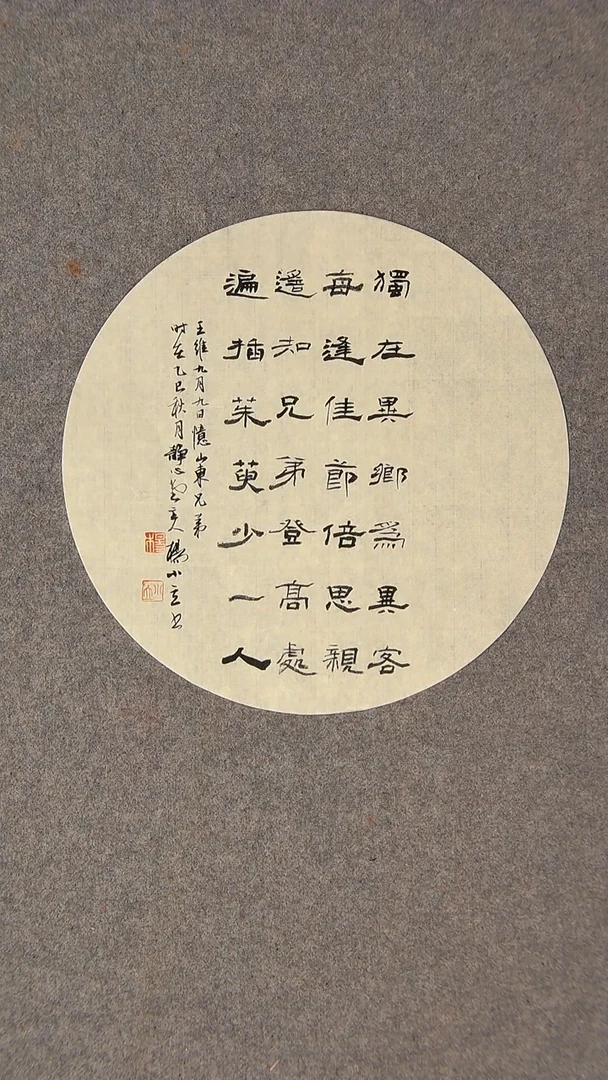 獨在異鄉為異客
每逢佳節倍思親
遥知兄弟登高處
遍插茱萸少一人
王維九月九日憶山東兄弟
时在乙巳秋月靜心堂主人楊小立书